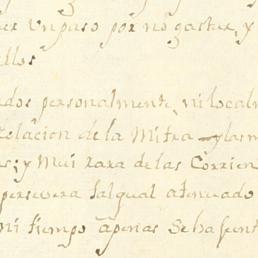 un paso por no gastar, y
ellos
ados personalmente, ni localm
Relacion de la Mitra y las m
s; y Mui rara de las Corrien
persevera tal qual atenuado
ni tiempo apenas se ha sent